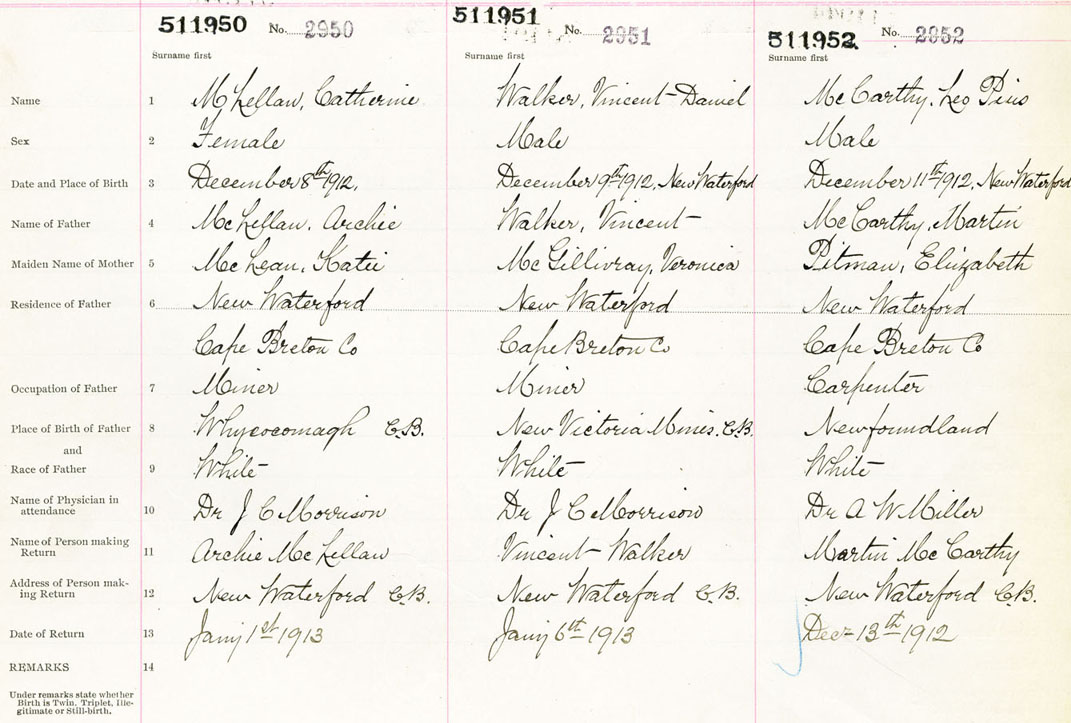 511950 No. 2950 511951 No. 2951 511952 No. 2952
Surname first Surname first Surname first
Name 1 McLellan, Catherine Walker, Vincent Daniel McCarthy, Leo Pius
Sex 2 Female Male Male
Date and Place of Birth 3 December 8th 1912, December 9th 1912, New Waterford December 11th 1912, New Waterford
Name of Father 4 McLellan, Archie Walker, Vincent McCarthy, Martin
Maiden Name of Mother 5 McLean, Katie McGillivray, Veronica Pitman, Elizabeth
Residence of Father 6 New Waterford New Waterford New Waterford
Cape Breton Co Cape Breton Co Cape Breton Co
Occupation of Father 7 Miner Miner Carpenter
Place of Birth of Father 8 Whycocomagh C.B. New Victoria Mines. C.B. Newfoundland
and
Race of Father 9 White White White
Name of Physician in
attendance 10 Dr J C Morrison Dr J C Morrison Dr A W Miller
Name of Person making
Return 11 Archie McLellan Vincent Walker Martin McCarthy
Address of Person mak-
ing Return 12 New Waterford C.B. New Waterford C.B. New Waterford C.B.
Date of Return 13 Jany 1st 1913 Jany 6th 1913 Dec 13th 1912
REMARKS 14
Under remarks state whether
Birth is Twin, Triplet, Ille-
gitimate or Still-birth.